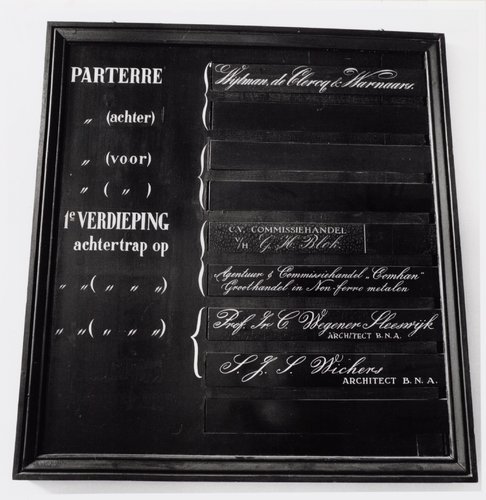 PARTERRE Wijtman, de Clercq & Warnaars.
〃 (achter)
〃 (voor)
〃 ( 〃 )
1e VERDIEPING C.V. COMMISSIEHANDEL
achtertrap op V/H G. H. Blok
〃 〃 ( 〃 〃 〃 ) Agentuur & Commissiehandel "Comhan"
Groothandel in Non-ferro metalen
〃 〃 ( 〃 〃 〃 ) Prof. Ir C. Wegener Sleeswijk
ARCHITECT B.N.A.
S. J. S. Wichers
ARCHITECT B. N. A.